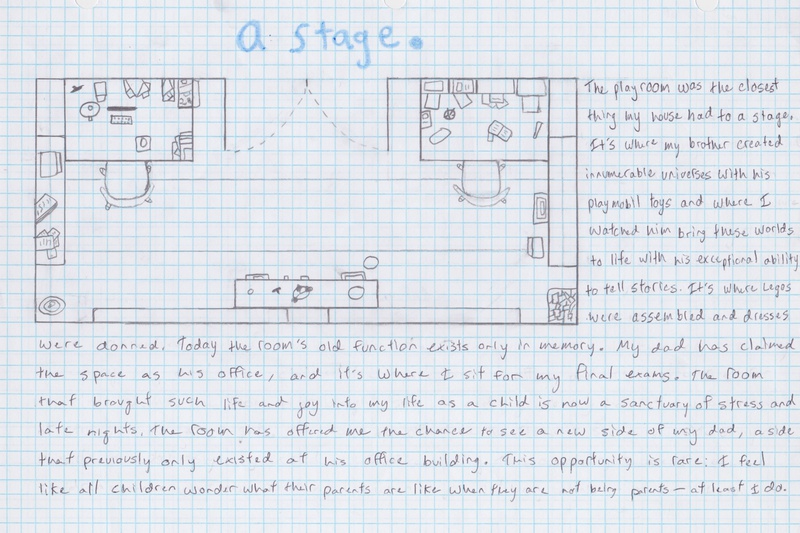 a stage.
The playroom was the closest
thing my house had to a stage.
It's where my brother created
innumerable universes with his
playmobil toys and where I
watched him bring these worlds
to life with his exceptional ability
to tell stories. It's where Legos
were assembled and dresses
were donned. Today the room's old function exists only in memory. My dad has claimed
the space as his office, and it's where I sit for my final exams. The room
that brought such life and joy into my life as a child is now a sanctuary of stress and
late nights. The room has offered me the chance to see a new side of my dad, a side
that previously only existed at his office building. This opportunity is rare: I feel
like all children wonder what their parents are like when they are not being parents — at least I do.